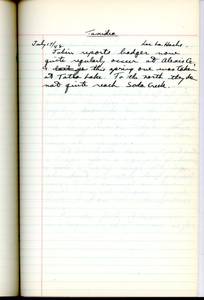 Taxidea
July 17/42. Lac La Hache.
Tobin reports badger now
quite regularly occur at Alexis Cr.,
this spring one was taken
at Tatla Lake. To the north they do
not quite reach Soda Creek.